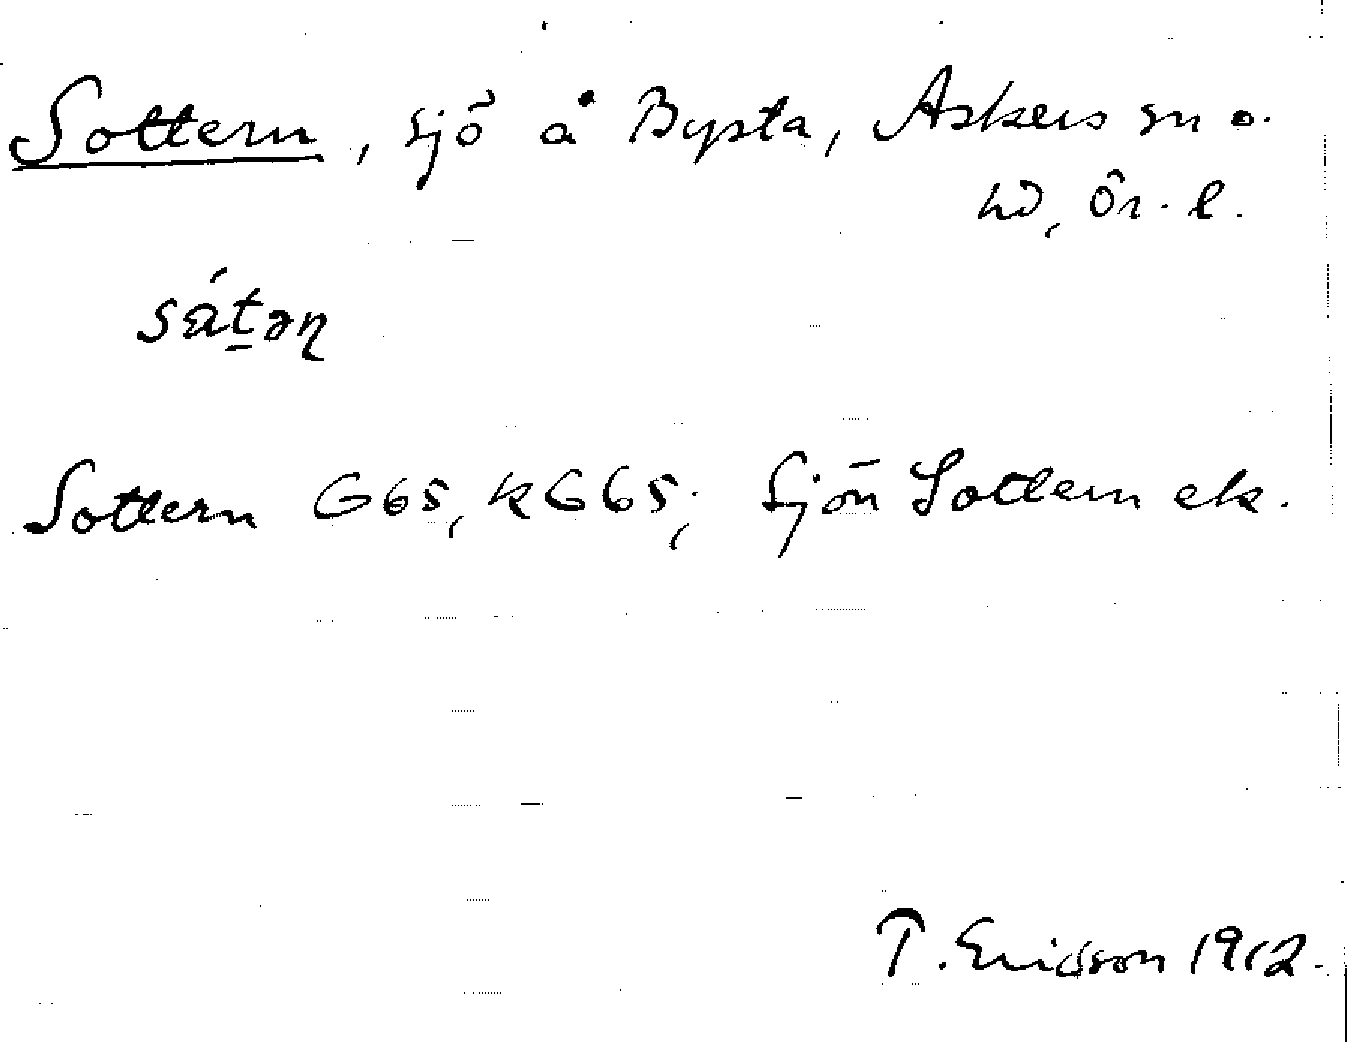 Sottern, sjö å Bysta, Askers sn o.
hd, Ör. l.
sátəɳ
Sottern G65, kG65; Sjön Sottern ek.
T. Ericsson 1912.